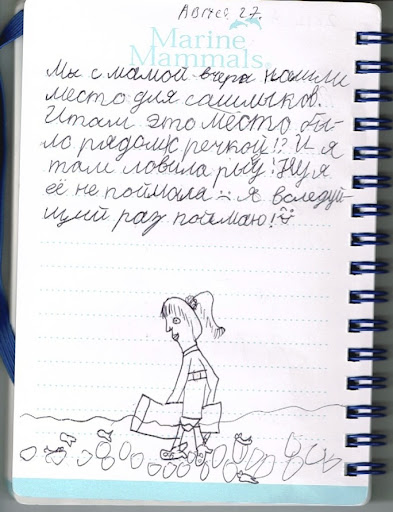 Август 27.
Marine
Mammals
Мы с мамой вчера нашли
место для сашлыков.
И там это место бы-
ло рядом с речкой!? И я
там ловила рыбу! Ну я
её не поймала :( я вследуй-
щий раз поймаю!